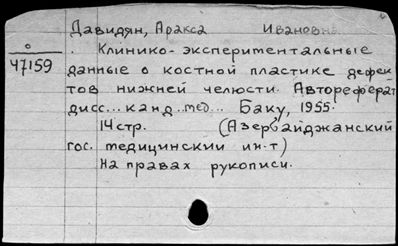 Давидян, Аракса Ивановна.
о
47159
Клинико-экспериментальные
данные о костной пластике дефек-
тов нижней челюсти. Автореферат
дисс... канд. мед... Баку, 1955.
14 стр. (Азербайджанский
гос. медицинский ин-т)
На правах рукописи.